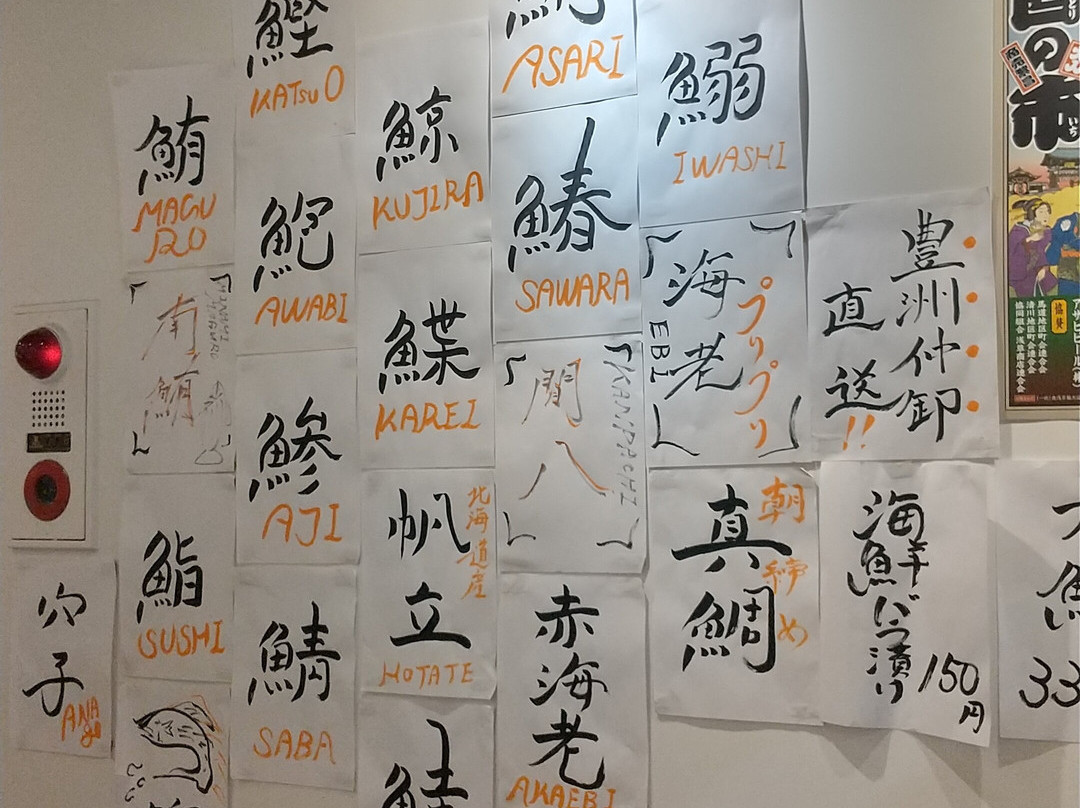 鰹
KATSUO
鮪
MAGU
RO
鯨
KUJIRA
ASARI
鰯
IWASHI
鮑
AWABI
鰆
SAWARA
海老
プリプリ
EBI
豊洲仲卸
直送!!
南鮪
鰈
KAREI
間八
KANPACHI
鯵
AJI
北海道産
帆立
HOTATE
朝締め
真鯛
海鮮ばらづけ
150円
鮨
SUSHI
穴子
ANAGO
鯖
SABA
赤海老
AKAEBI
鮭
33
の市
いち
協賛